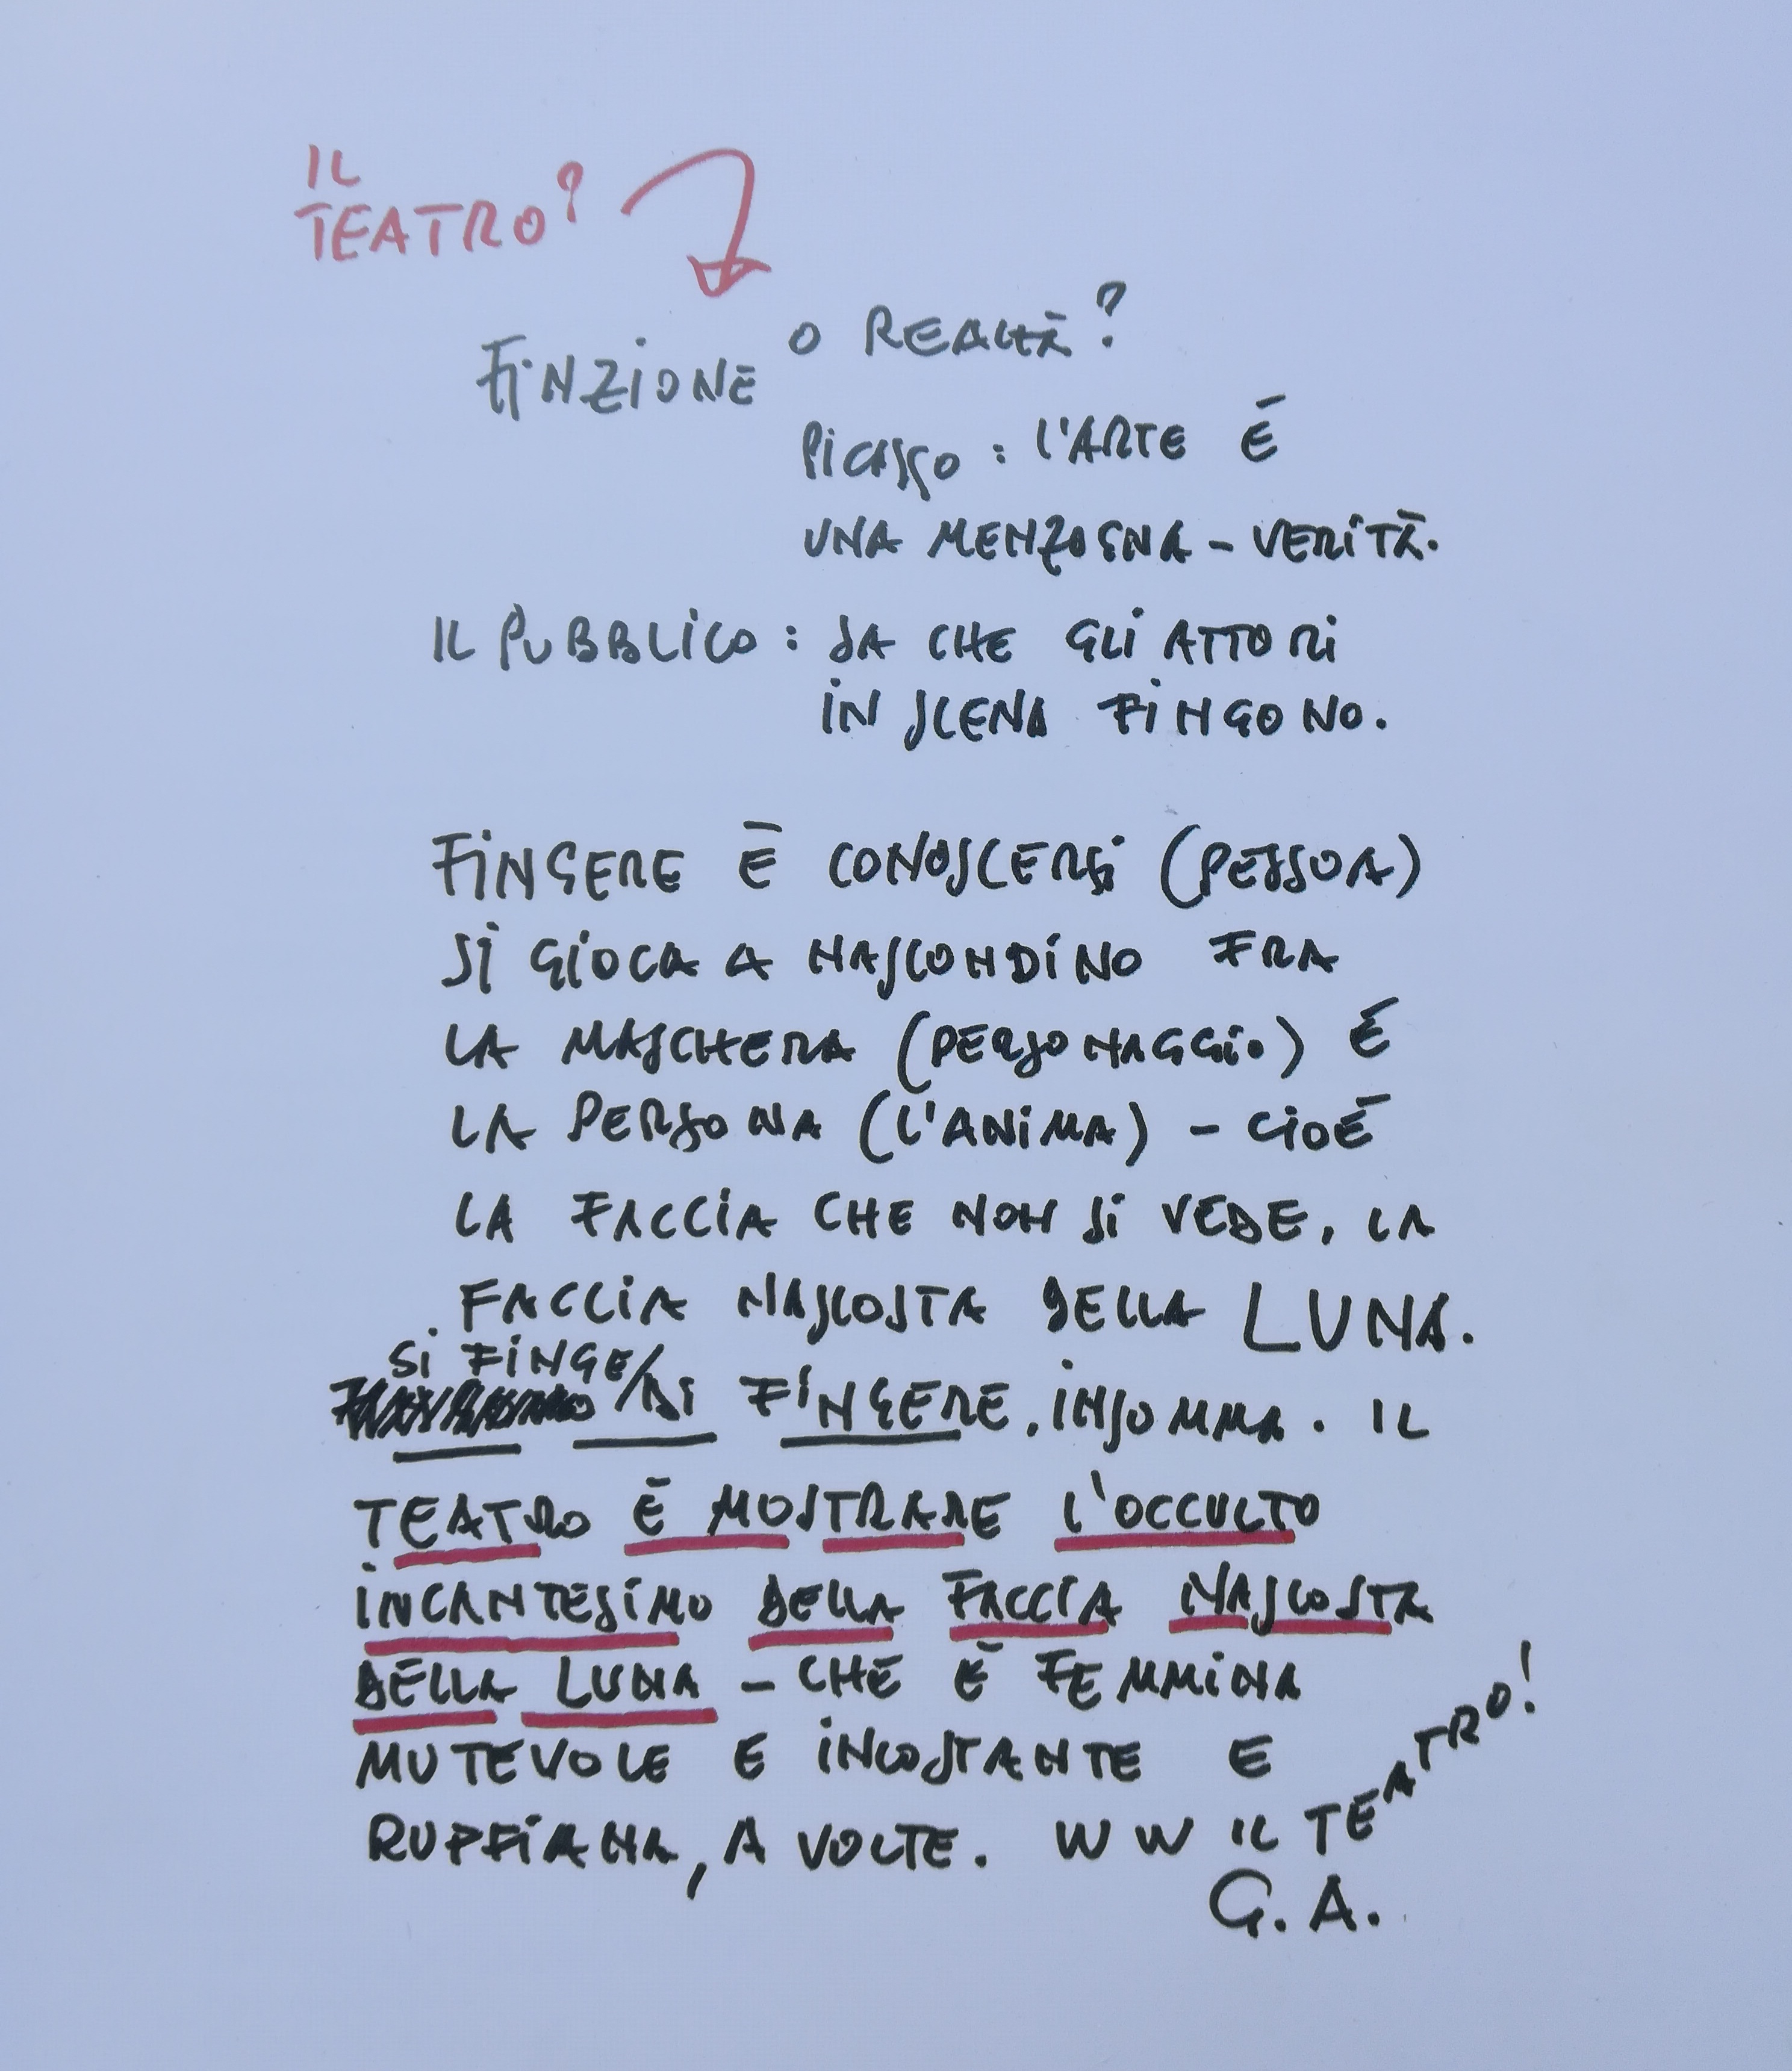 IL
TEATRO?
FINZIONE O REALTÀ?
PICASSO: L'ARTE È
UNA MENZOGNA - VERITÀ.
IL PUBBLICO: SA CHE GLI ATTORI
IN SCENA FINGONO.
FINGERE È CONOSCERSI (PESSOA)
SI GIOCA A NASCONDINO FRA
LA MASCHERA (PERSONAGGIO) E
LA PERSONA (L'ANIMA) - CIOÈ
LA FACCIA CHE NON SI VEDE, LA
FACCIA NASCOSTA DELLA LUNA.
SI FINGE/DI FINGERE, INSOMMA. IL
TEATRO È MOSTRARE L'OCCULTO
INCANTESIMO DELLA FACCIA NASCOSTA
DELLA LUNA - CHE È FEMMINA
MUTEVOLE E INCOSTANTE E
RUFFIANA, A VOLTE. W W IL TEATRO!
G.A.